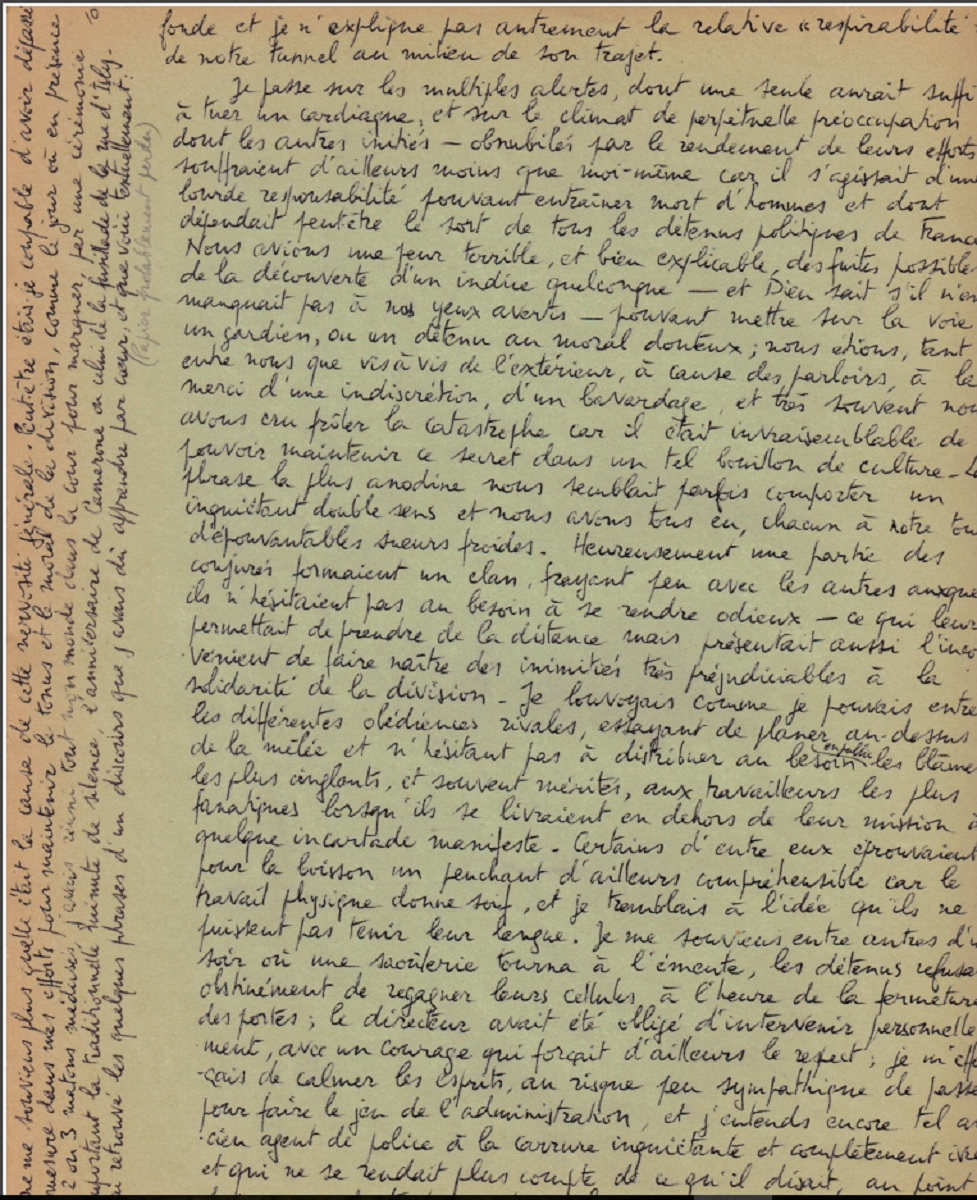 fonde et je n'explique pas autrement la relative « respirabilité »
de notre tunnel au milieu de son trajet.
Je passe sur les multiples alertes, dont une seule aurait suffi
à tuer un cardiaque, et sur le climat de perpétuelle préoccupation
dont les autres initiés — obnubilés par le rendement de leurs efforts,
souffraient d'ailleurs moins que moi-même car il s'agissait d'une
lourde responsabilité pouvant entraîner mort d'hommes et dont
dépendait peut-être le sort de tous les détenus politiques de France
Nous avions une peur terrible, et bien explicable, des fuites possible
de la découverte d'un indice quelconque — et Dieu sait s'il n'en
manquait pas à nos yeux avertis — pouvant mettre sur la voie
un gardien, ou un détenu au moral douteux ; nous étions, tant
entre nous que vis à vis de l'extérieur, à cause des parloirs, à la
merci d'une indiscrétion, d'un bavardage, et très souvent nou
avons cru frôler la catastrophe car il était invraisemblable de
pouvoir maintenir ce secret dans un tel bouillon de culture - La
phrase la plus anodine nous semblait parfois comporter un
inquiétant double sens et nous avons tous eu, chacun à notre tou
d'épouvantables sueurs froides. Heureusement une partie des
conjurés formaient un clan, frayant peu avec les autres auxque
ils n'hésitaient pas au besoin à se rendre odieux — ce qui leur
permettait de prendre de la distance mais présentait aussi l'inco
vénient de faire naître des inimitiés très préjudiciables à la
solidarité de la division - Je louvoyais comme je pouvais entre
les différentes obédiences rivales, essayant de planer au-dessus
de la mêlée et n'hésitant pas à distribuer au besoin les blâme
les plus cinglants, et souvent mérités, aux travailleurs les plus
fanatiques lorsqu'ils se livraient en dehors de leur mission à
quelque incartade manifeste - Certains d'entre eux éprouvaient
pour la boisson un penchant d'ailleurs compréhensible car le
travail physique donne soif, et je tremblais à l'idée qu'ils ne
puissent pas tenir leur langue. Je me souviens entre autres d'u
soir où une saoûlerie tourna à l'émeute, les détenus refusa
obstinément de regagner leurs cellules à l'heure de la fermeture
des portes ; le directeur avait été obligé d'intervenir personnelle
-ment, avec un courage qui forçait d'ailleurs le respect ; je m'effo
-çais de calmer les esprits, au risque peu sympathique de passe
pour faire le jeu de l'administration, et j'entends encore tel an
-cien agent de police à la carrure inquiétante et complètement ivre
et qui ne se rendait plus compte de ce qu'il disait, au point
me souviens plus quelle était la cause de cette nervosité générale. Peut-être étais-je coupable d'avoir dépassé
mesure dans mes efforts pour maintenir le tonus et le moral de la division, comme le jour où en présence
2 ou 3 matons médusés, j'avais réuni tout mon monde dans la cour pour marquer, par une cérémonie
portant la traditionnelle minute de silence, l'anniversaire de Camerone ou celui de la fusillade de la rue d'Isly.
ai retrouvé les quelques phrases d'un discours que j'avais dû apprendre par cœur, et que voici textuellement :
(Papier préalablement perdu)